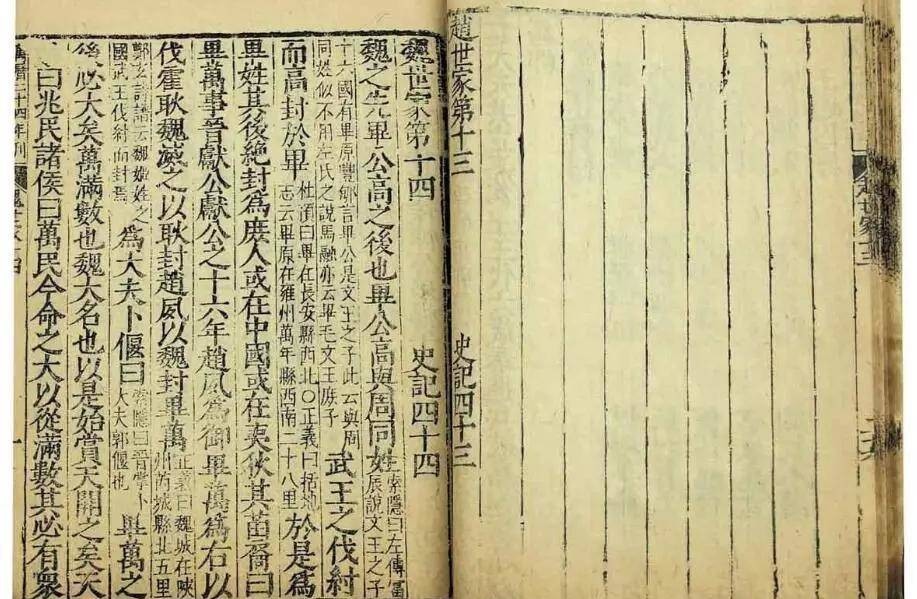 趙世家十三
趙世家第十三 史記四十三
魏世家第十四 史記四十四
魏之先畢公高之後也畢公高與周同姓 索隱曰左傳富
辰說文王之子
十六國有畢原豐郇言畢公是文王之子此云與周
同姓似不用左氏之說馬融亦云畢毛文王庶子
武王之伐紂
而高封於畢
杜預曰畢在長安縣西北○正義曰括地
志云畢原在雍州萬年縣西南二十八里
於是為
畢姓其後絕封為庶人或在中國或在夷狄其苗裔曰
畢萬事晉獻公獻公之十六年趙夙為御畢萬為右以
伐霍耿魏滅之以耿封趙夙以魏封畢萬
正義曰魏城在陝
州芮城縣北五里
鄭玄詩譜云魏姬姓之
國武王伐紂而封焉
為大夫卜偃曰
索隱曰晉掌卜
大夫郭偃也
畢萬之
後必大矣萬滿數也魏大名也以是始賞天開之矣天
曰兆民諸侯曰萬民今命之大以從滿數其必有衆
萬曆二十四年刊 魏世家十四 一